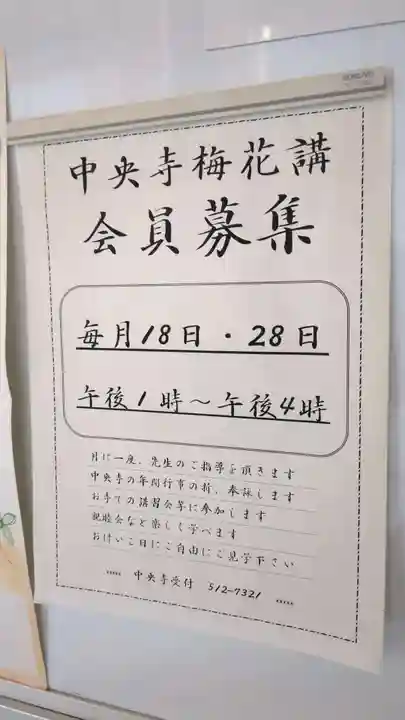 中央寺梅花講
会員募集
毎月18日・28日
午後1時～午後4時
月に一度、先生のご指導を頂きます
中央寺の年間行事の折、奉詠します
お寺での講習会等に参加します
親睦会など楽しく学べます
おけいこ日にご自由にご見学下さい
••••• 中央寺受付 512-7321 •••••